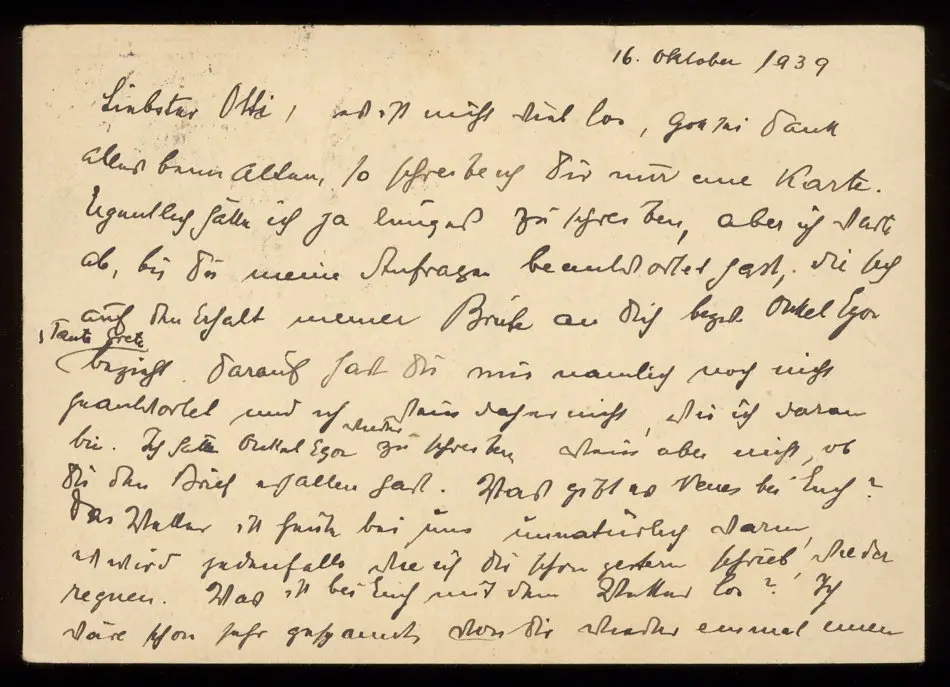 16. Oktober 1939
Liebster Otti, es ist nicht viel los, gottsei dank
alles beim Alten, so schreibe ich dir nur eine Karte.
Eigentlich hätte ich ja längst zu schreiben, aber ich warte
ab, bis du meine Anfragen beantwortet hast, die sich
auf den Erhalt meiner Briefe an dich bezw. Onkel Egon
, Tante Grete
bezieht. Darauf hast du mir nämlich noch nicht
geantwortet und ich weiss daher nicht, wie ich daran
bin. Ich hätte Onkel Egon wieder zu schreiben, weiss aber nicht, ob
du den Brief erhalten hast. Was gibt es Neues bei Euch?
Das Wetter ist heute bei uns unnatürlich warm,
es wird jedenfalls, wie ich dir schon gestern schrieb, wieder
regnen. Was ist bei Euch mit dem Wetter los? Ich
wäre schon sehr gespannt, von dir wieder einmal einen